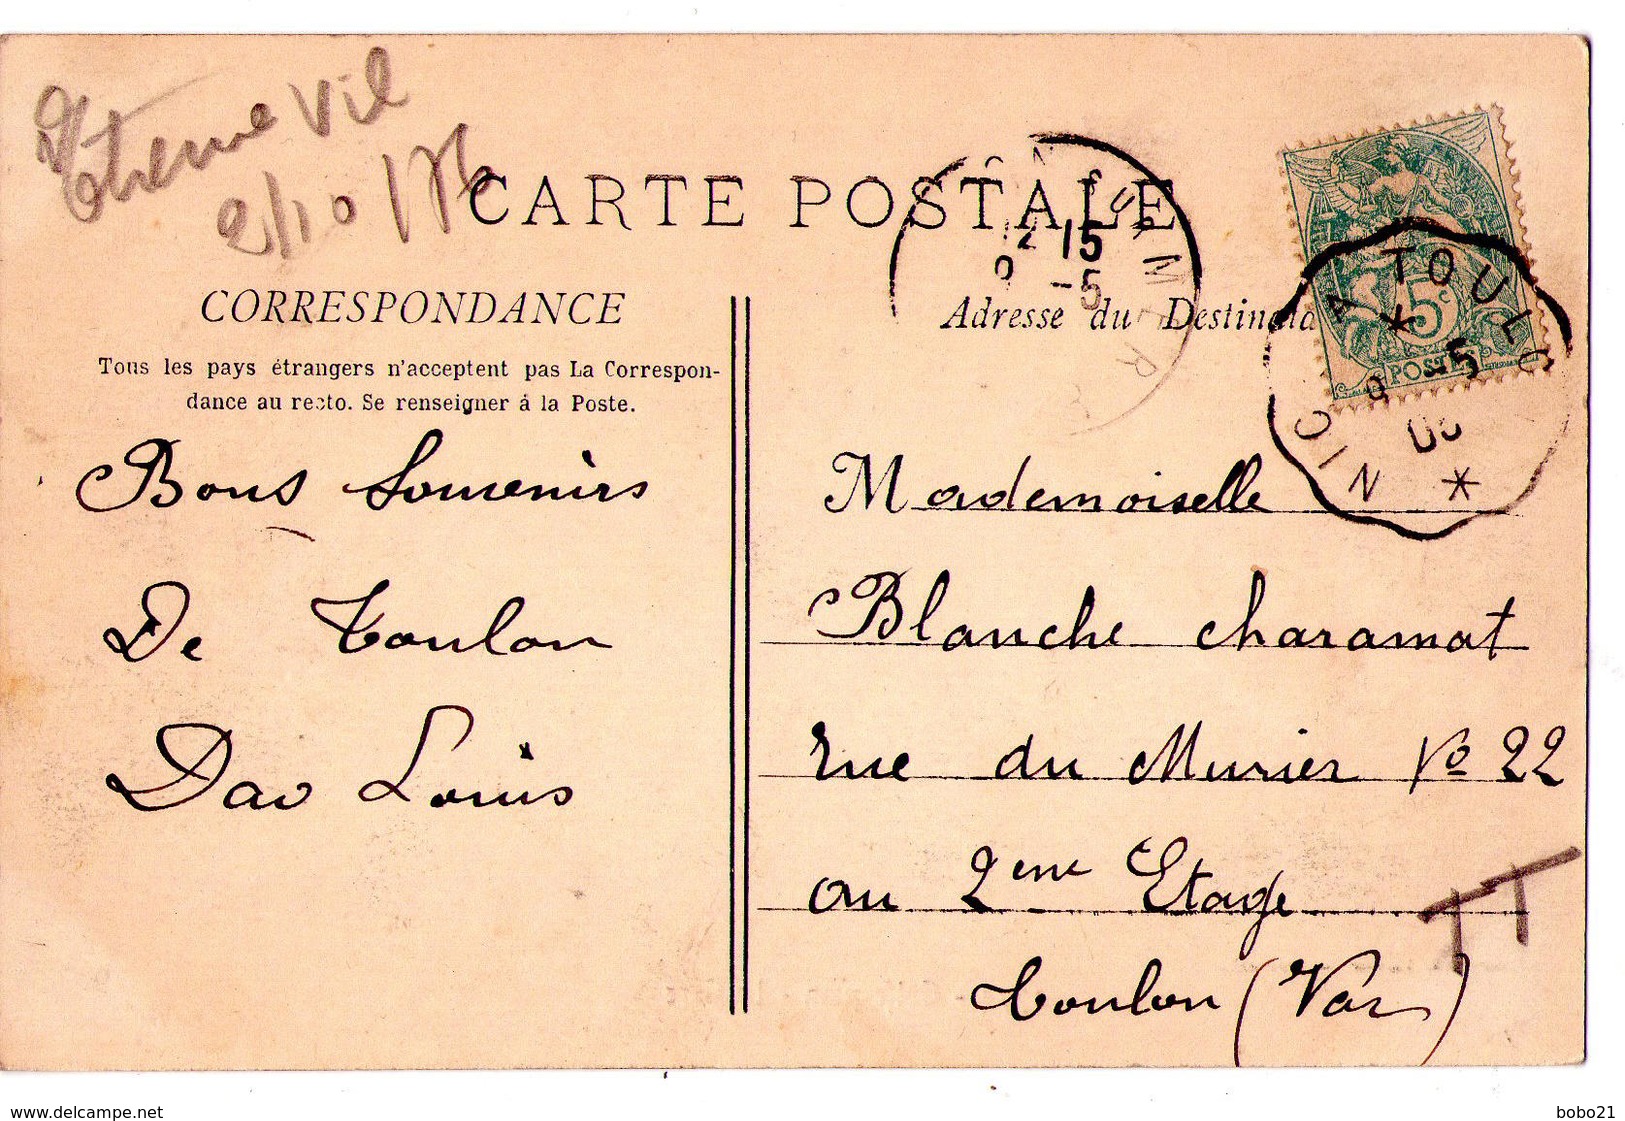 vil
2/10/76
CARTE POSTALE
CORRESPONDANCE
Adresse du Destinata
Tous les pays étrangers n'acceptent pas La Correspon-
dance au recto. Se renseigner á la Poste.
12 15
9 -5
5c
POSTES
NICE A TOULON
9 -5
Bons Souvenirs
De Toulon
Dao Louis
Mademoiselle
Blanche Charamat
rue du Murier No 22
au 2eme Etage
Toulon (Var)
www.delcampe.net
bobo21